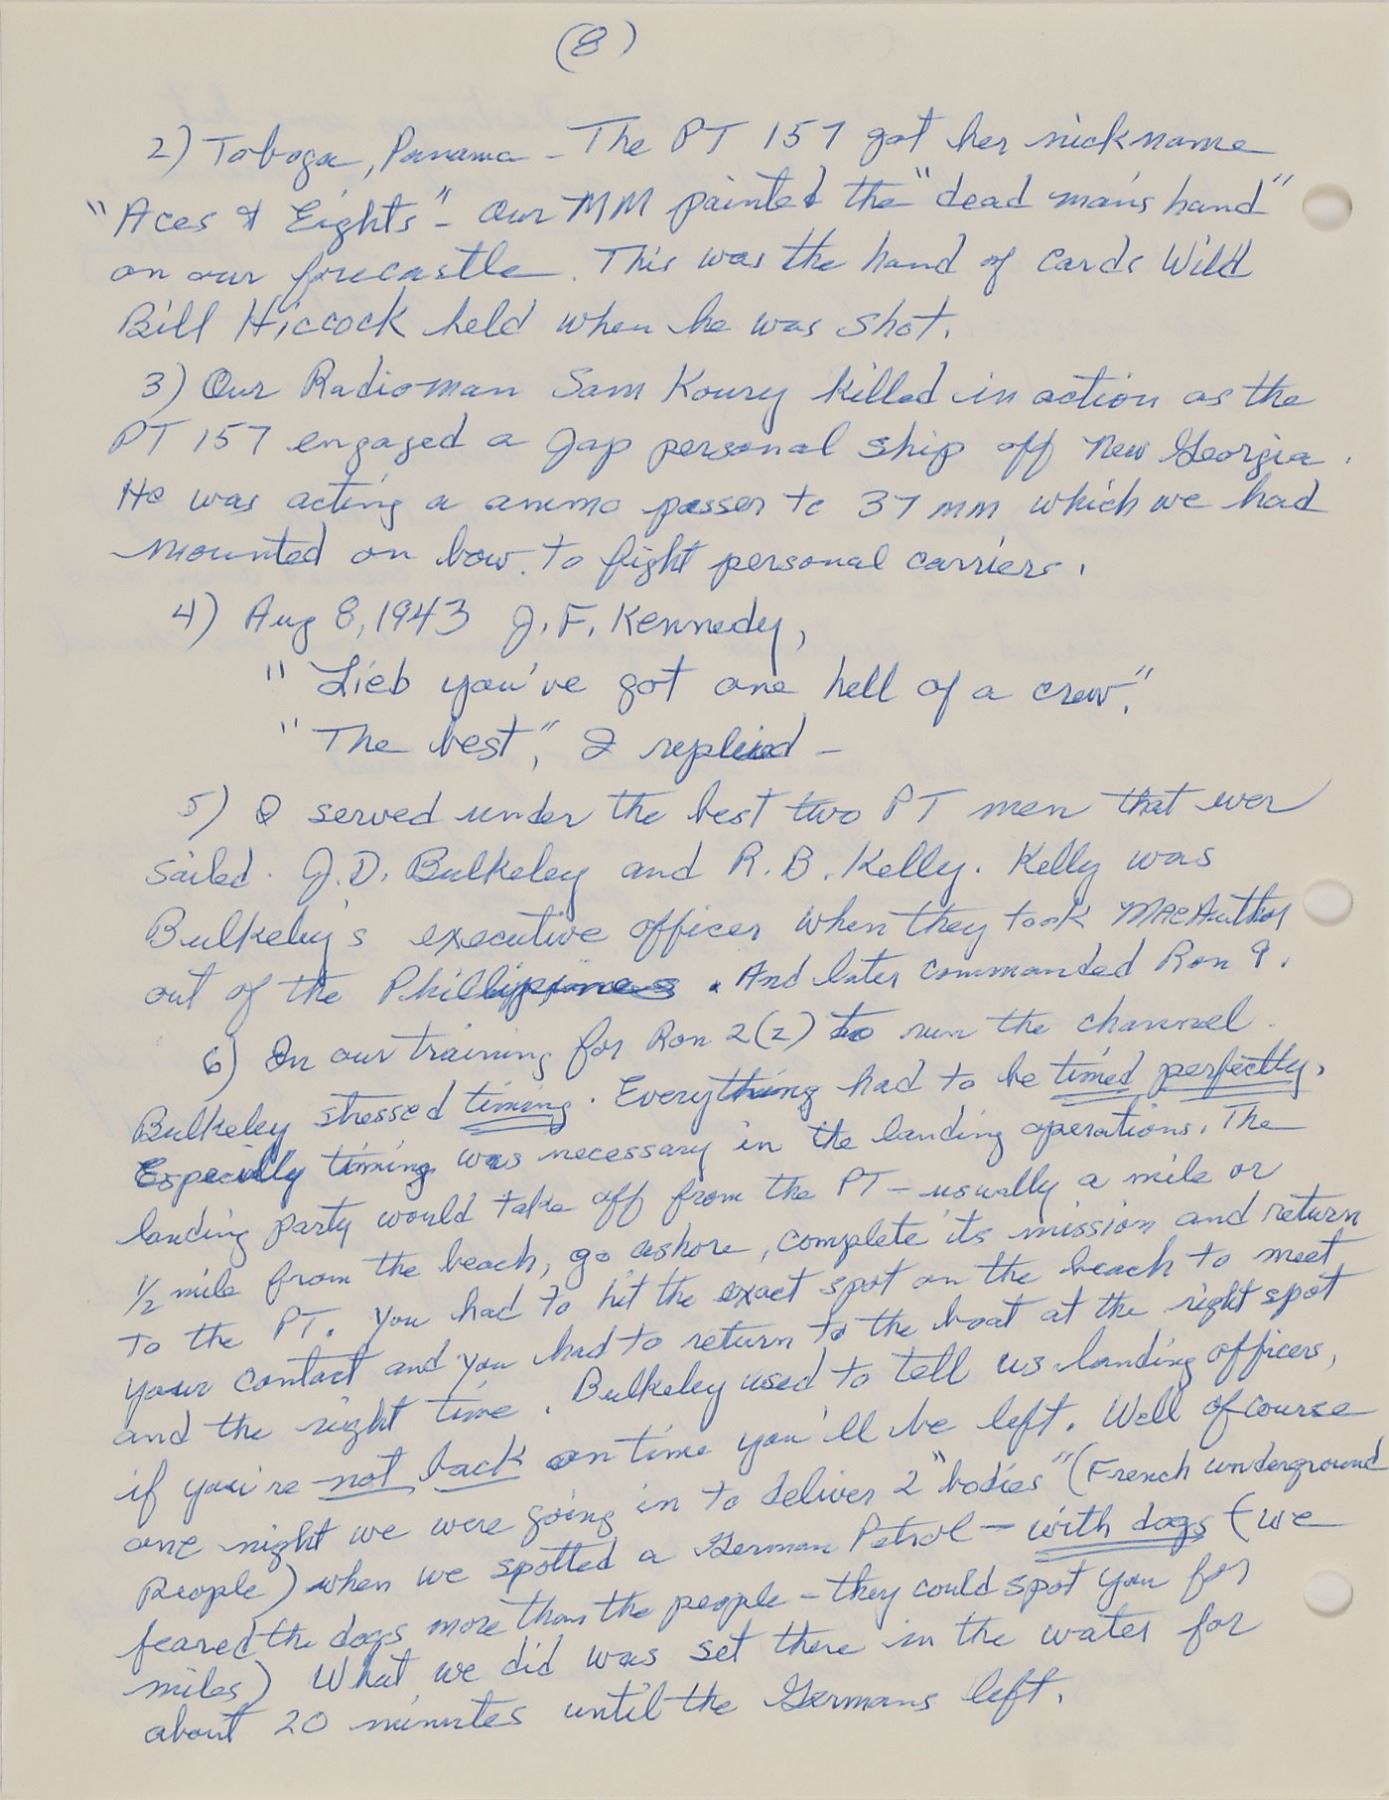 (8)
2) Taboga, Panama - The PT 157 got her nickname
"Aces & Eights" - Our MM painted the "dead man's hand"
on our forecastle. This was the hand of cards Wild
Bill Hiccock held when he was shot.
3) Our Radioman Sam Koury killed in action as the
PT 157 engaged a Jap personal ship off New Georgia.
He was acting a ammo passer to 37 mm which we had
mounted on bow. to fight personal carriers.
4) Aug 8, 1943 J.F. Kennedy,
"Lieb you've got one hell of a crew."
"The best," I replied -
5) I served under the best two PT men that ever
sailed. J.D. Bulkeley and R.B. Kelly. Kelly was
Bulkeley's executive officer when they took MacAuthor
out of the Phillippines. And later commanded Ron 9.
6) In our training for Ron 2(2) to run the channel.
Bulkeley stressed timing. Everything had to be timed perfectly.
Especially timing was necessary in the landing operations. The
landing party would take off from the PT - usually a mile or
1/2 mile from the beach, go ashore, complete its mission and return
to the PT. You had to hit the exact spot on the beach to meet
your contact and you had to return to the boat at the right spot
and the right time. Bulkeley used to tell us landing officers,
if you're not back on time you'll be left. Well of course
one night we were going in to deliver 2 "bodies" (French underground
People) when we spotted a German Patrol - with dogs (we
feared the dogs more than the people - they could spot you for
miles) What we did was set there in the water for
about 20 minutes until the Germans left.